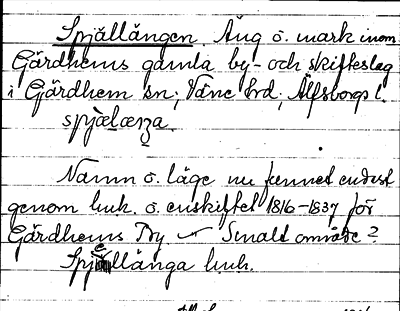 Spjällängen Äng o. mark inom
Gärdhems gamla by- och skifteslag
i Gärdhem sn; Väne hd, Älfsborgs l.
spjælæŋa.
Namn o. läge nu funnet endast
genom luh. o. enskiftet 1816-1837 för
Gärdhems By Smalt område?
Spjellånga luh.